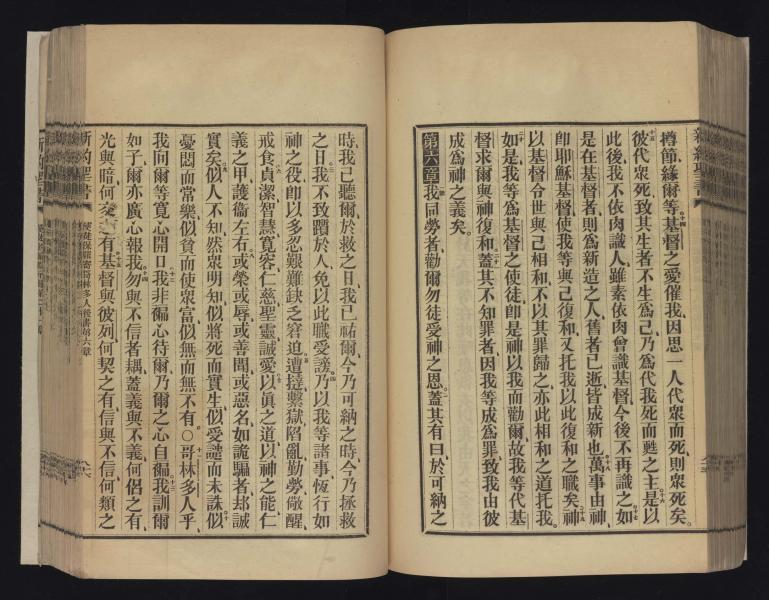 新約聖書
樽節緣爾等基督之愛催我因思一人代衆而死則衆死矣
彼代衆死致其生者不生爲己乃爲代我死而甦之主是以
此後我不依肉識人雖素依肉曾識基督今後不再識之如
是在基督者則爲新造之人舊者已逝皆成新也萬事由神
卽耶穌基督使我等與己復和又托我以此復和之職矣神
以基督令世與己相和不以其罪歸之亦此相和之道托我
如是我等爲基督之使徒卽是神以我而勸爾故我等代基
督求爾與神復和蓋其不知罪者因我等成爲罪致我由彼
成爲神之義矣
第六章我同勞者勸爾勿徒受神之恩蓋其有曰於可納之
時我已聽爾於救之日我已祐爾今乃可納之時今乃拯救
之日我不致躓於人免以此職受謗乃以我等諸事恆行如
神之役卽以多忍艱難缺乏窘迫遭撻繫獄陷亂勤勞儆醒
戒食貞潔智慧寬容仁慈聖靈誠愛以眞之道以神之能仁
義之甲護衞左右或榮或辱或善聞或惡名如詭騙者却誠
實矣似人不知然衆明知似將死而實生似受譴而未誅似
憂悶而常樂似貧而使衆富似無而無不有○哥林多人乎
我向爾等寬心開口我非褊心待爾乃爾之心自褊我訓爾
如子爾亦廣心報我勿與不信者耦蓋義與不義何侶之有
光與暗何交之有基督與彼列何契之有信與不信何類之
新約聖書
使徒保羅寄哥林多人後書第六章